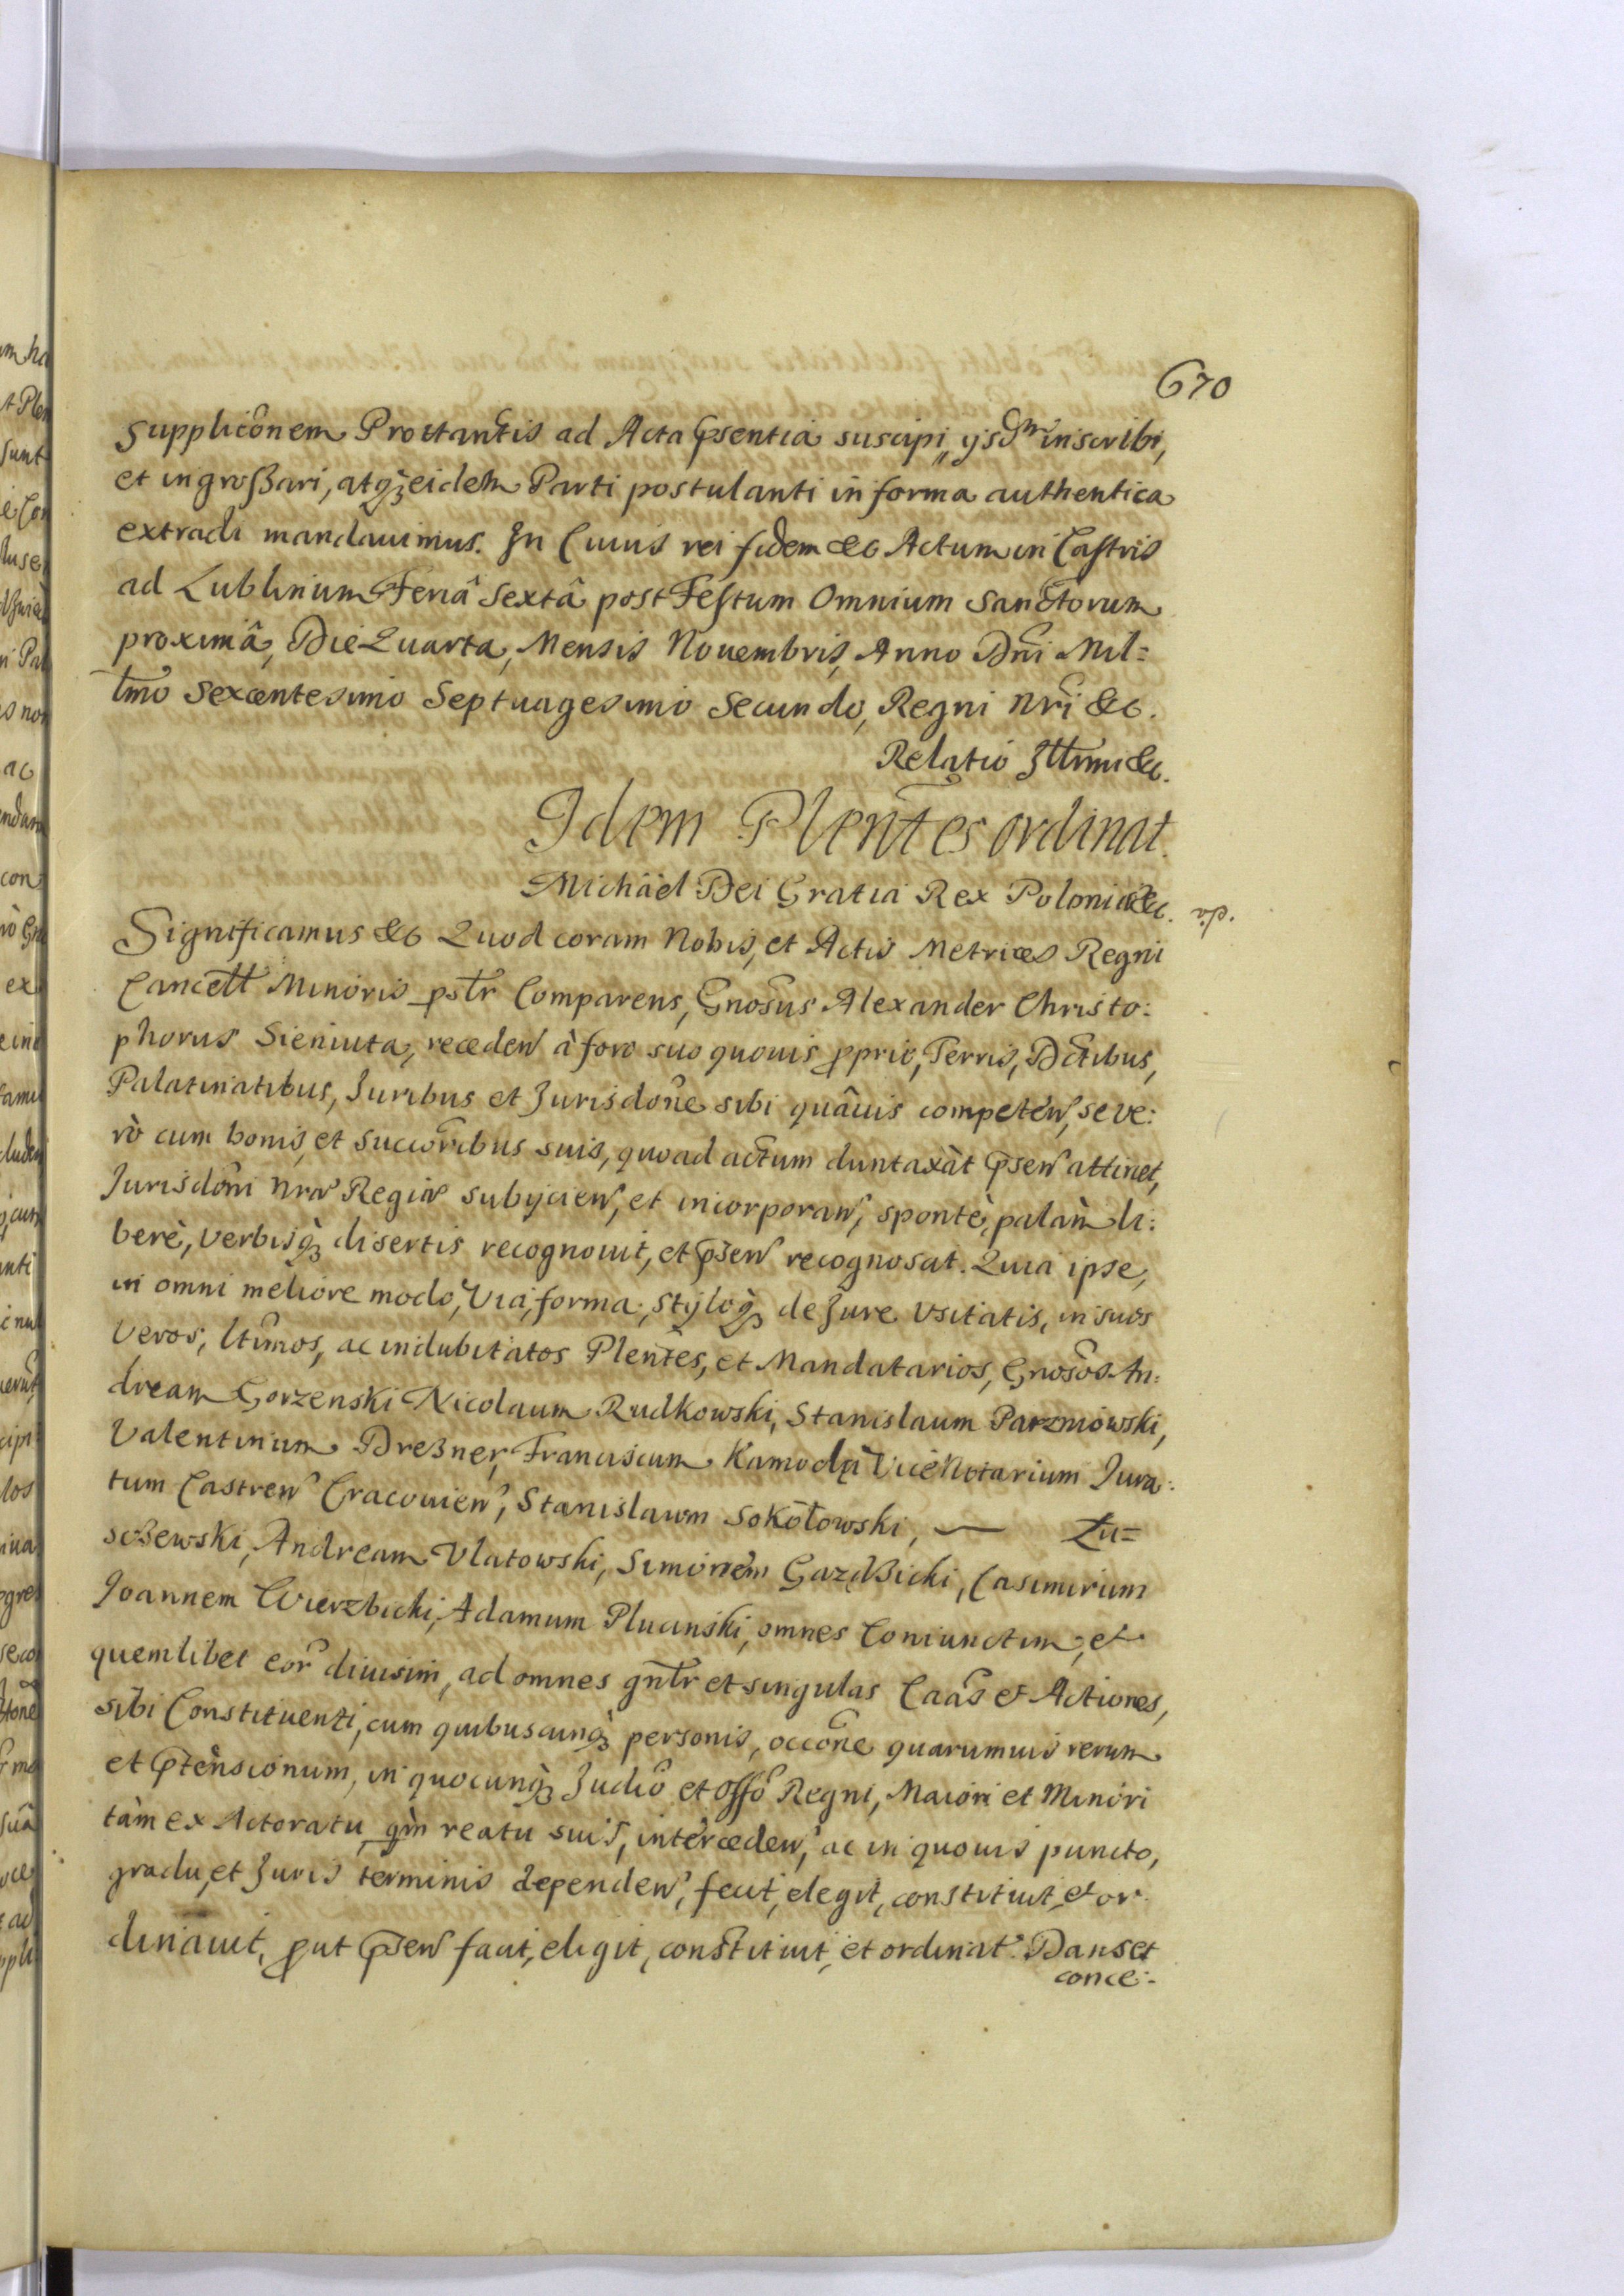 670
Supplicõnem Prottantis ad Acta p̃sentia suscipi, ijsq̃ inscribi,
et ingroßari, atq̀ꝫ eidem Parti postulanti in forma authentica
extradi mandavimus. In Cuius rei fidem &c Actum in Castris
ad Lublinum Feriâ Sextâ post Festum Omnium Sanctorum
proximâ, Die Quarta, Mensis Nouembris, Anno Dñi Mil=
lmõ Sexcentesimo Septuagesimo Secundo, Regni Nr̃i &c.
Relatio Illmi &c.
Idem Plent̃es ordinat.
Michäel Dei Gratia Rex Poloniæ &c. v.p.
Significamus &c Quod coram Nobis, et Actis Metrices Regni
Cancell Minoris pstr̃ Comparens, Gnosũs Alexander Christo:
phorus Sieniuta, receden̄ à foro suo quouis p̃prio, Terris, Dctĩbus,
Palatinatibus, Juribus et Jurisdoñe sibi quâuis competen̄, se ve:
rò cum bonis, et Succorĩbus suis, quoad actum duntaxàt p̃sen̄ attinet,
Jurisdoñi nr̃æ Regiæ subijcien̄, et incorporan̄, spontè, palàm li:
berè, verbisq̀ꝫ disertis recognouit, et p̃sen̄ recognoscit. Quia ipse,
in omni meliore modo, Via, forma, styloq̀ꝫ de Jure Usitatis, in suos
Veros, ltĩmos, ac indubitatos Plent̃es, et Mandatarios, Gnosõs An:
dream Gorzenski Nicolaum Rudkowski, Stanislaum Parzniowski,
Valentinum Dreßner, Franciscum Kamodzi Vice Notarium Jura:
tum Castren̄ Cracouien̄, Stanislaum Sokołowski, — Zu=
soßewski, Andream Vlatowski, Simonem Gazdßicki, Casimirum
Joannem Wierzbicki, Adamum Plucinski, omnes Coniunctim, et
quemlibet eor̃ diuisim, ad omnes gñlr et singulas Caãs et Actiones,
sibi Constituenti, cum quibuscunq̀ꝫ personis, occoñe quarumuis rerum
et p̃tensionum, in quocunq̀ꝫ Judiõ et Offõ Regni, Maiori et Minori
tàm ex Actoratu q̃m reatu suis, interceden̄, ac in quouis puncto,
gradu, et Juris terminis dependen̄, fecit, elegit, constituit, et or
dinauit, p̃ut p̃sen̄ facit, eligit, constituit, et ordinat. Dans et
conce: